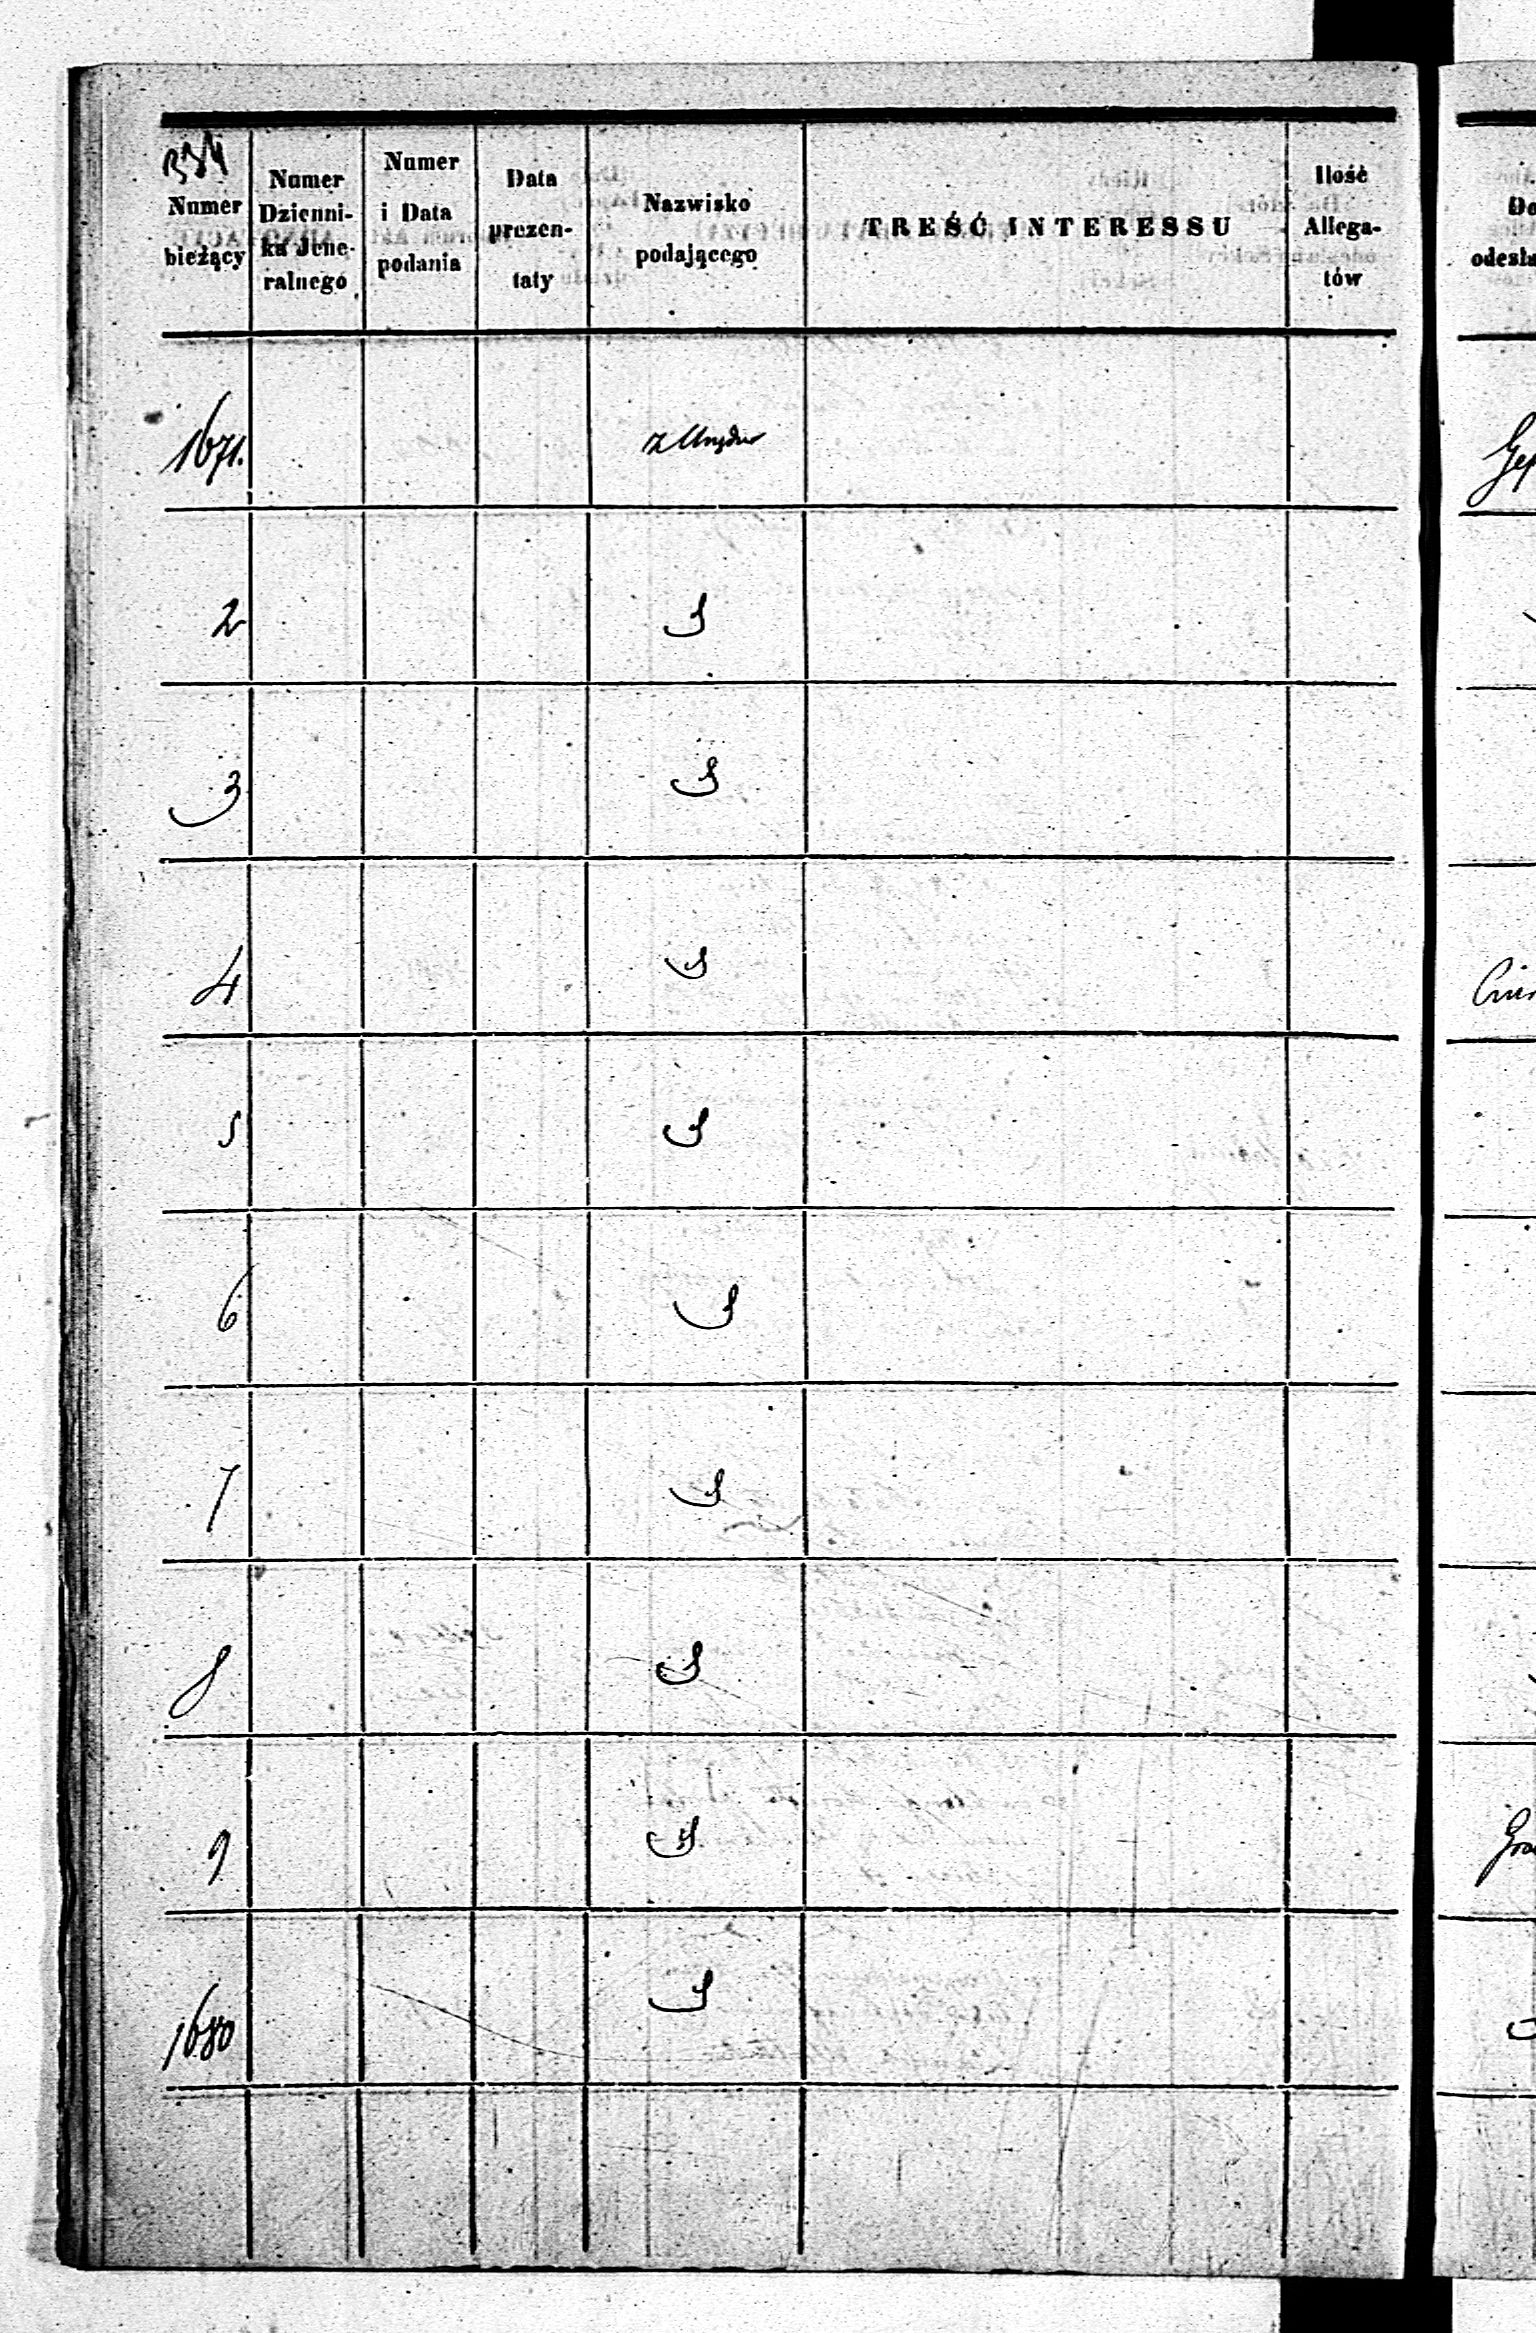 334
Numer bieżący
Numer Dzienni-ka Jene-ralnego
Numer i Data podania
Data prezen-taty
Nazwisko podającego
TREŚĆ INTERESSU
Ilość Allega-tów
1671. z Urzędu
2
3
4
5
6
7
8
9
1680